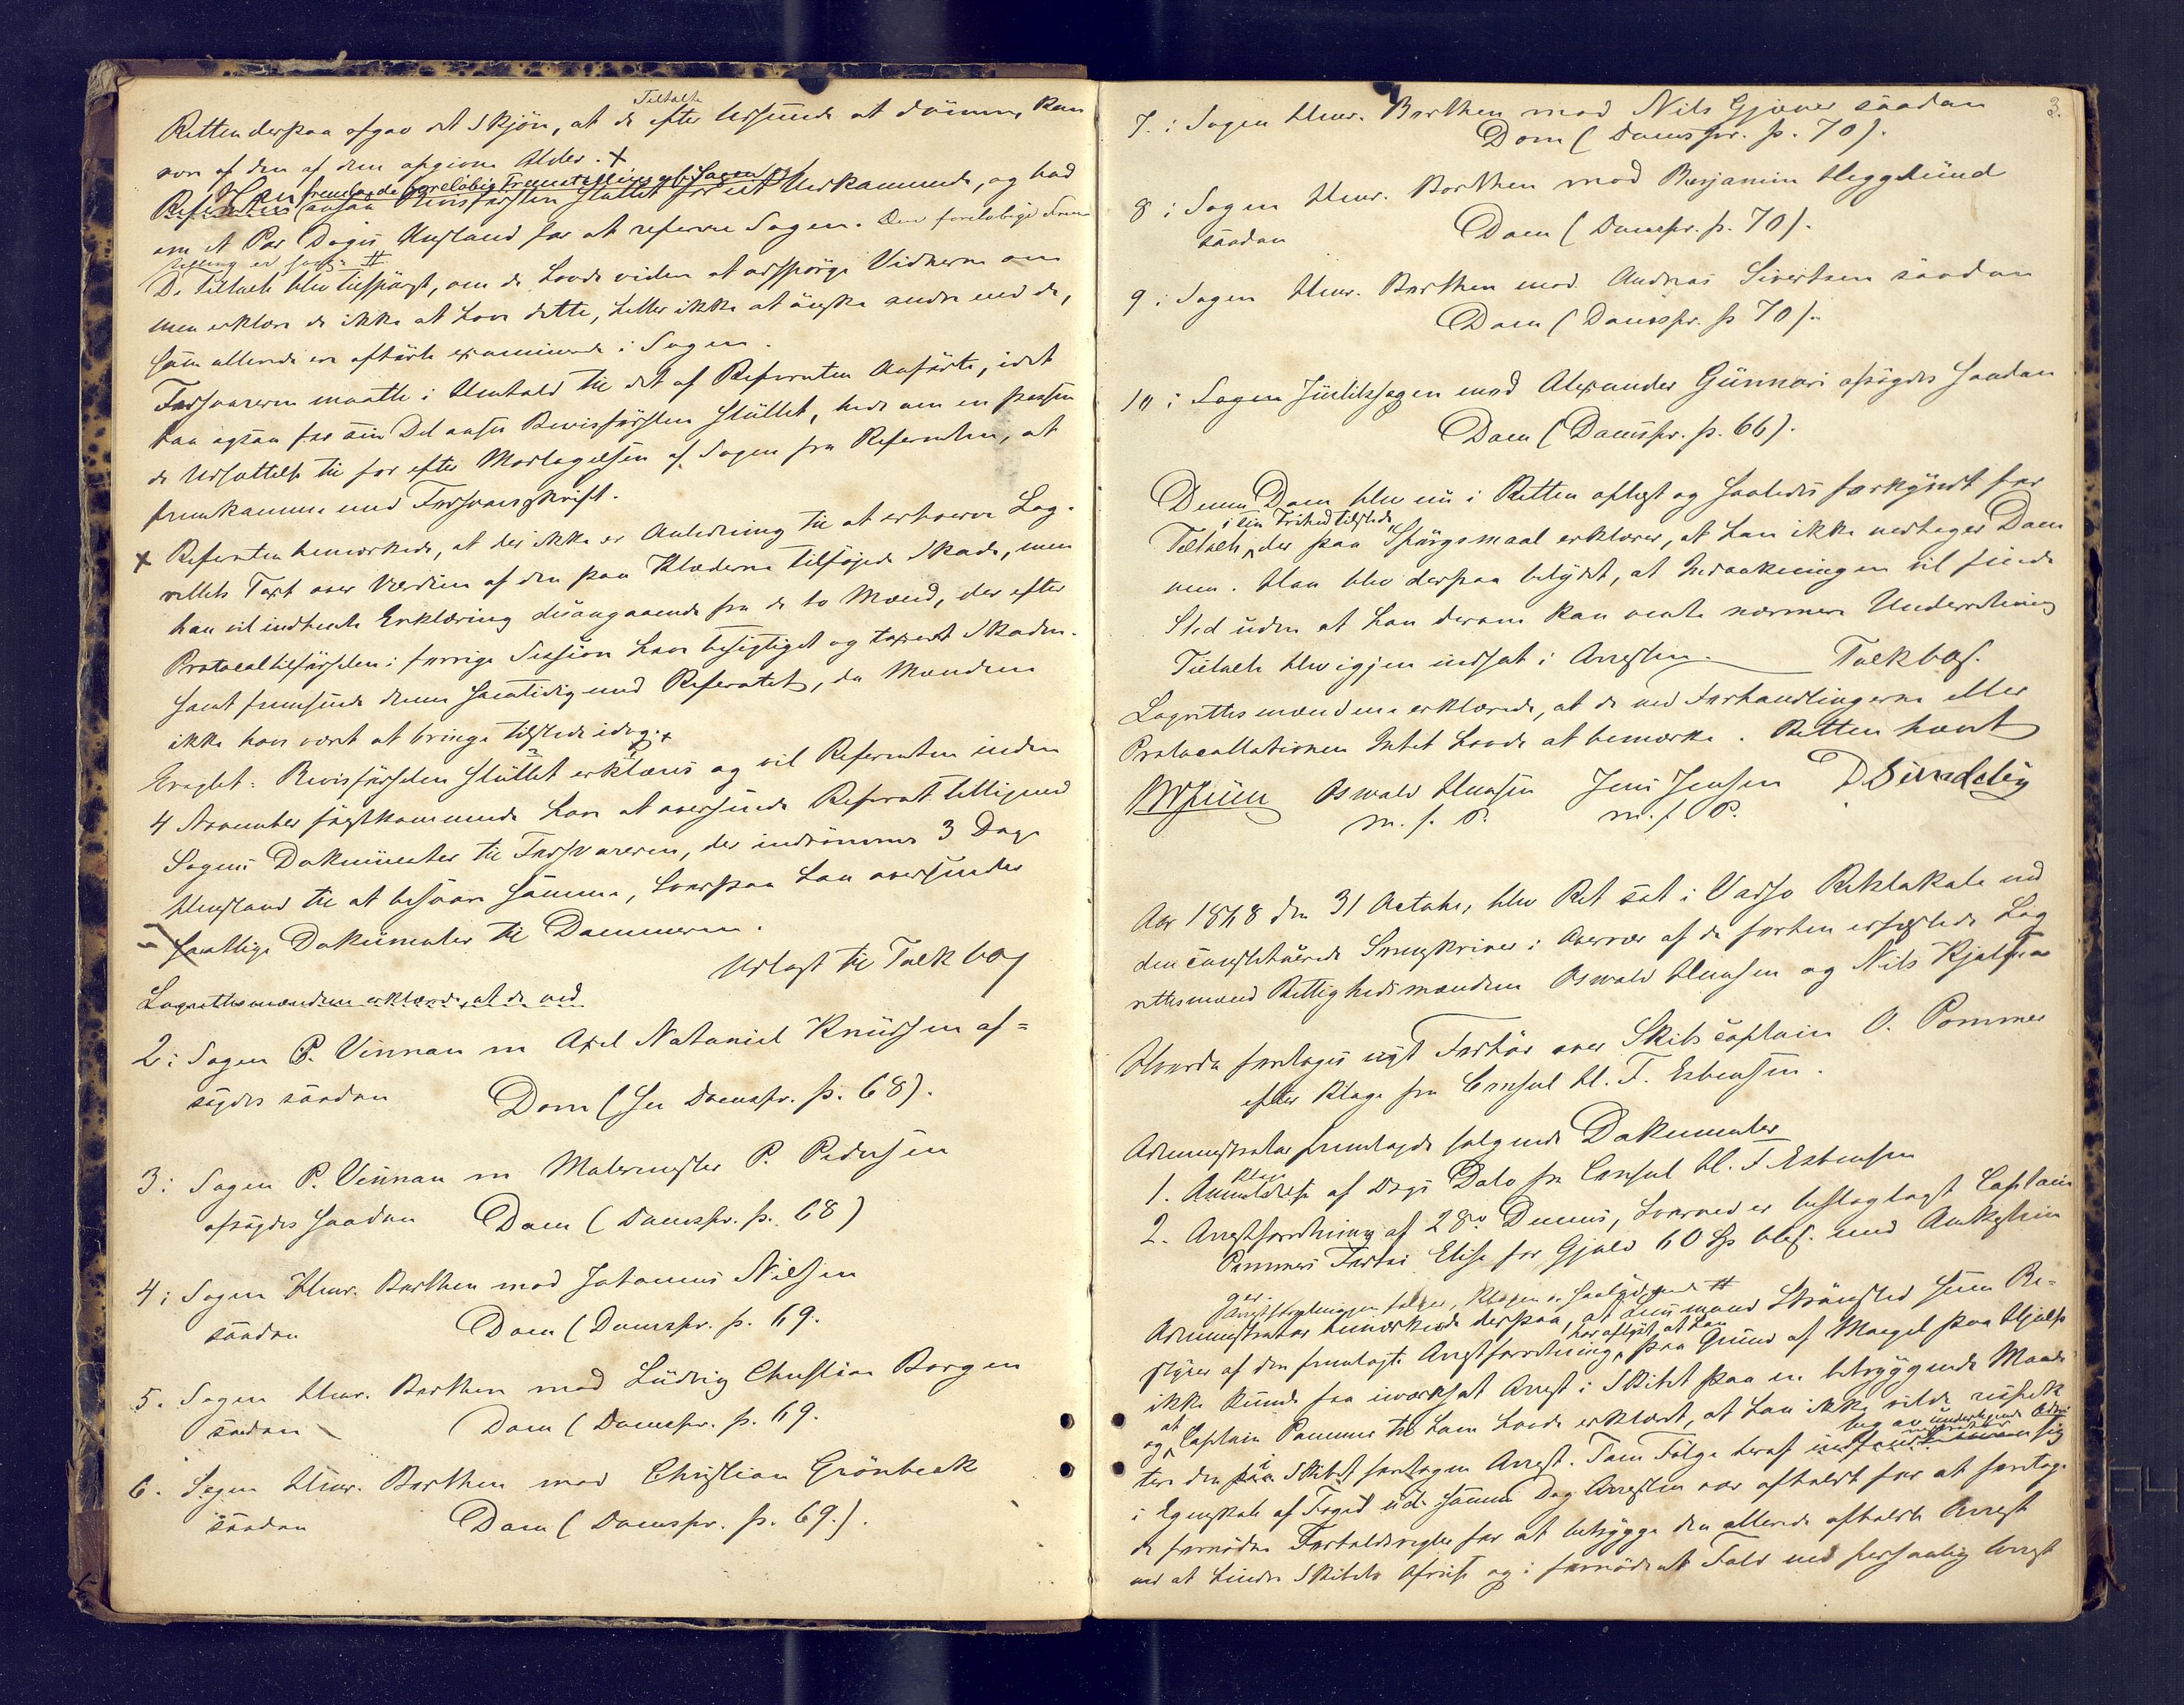 Tiltalte
Retten derpaa afgav det Skjøn, at de efter Udseende at dømme, kan
være af den af dem opgivne Alder. +
Han fremlagde foreløbig Fremstilling af Sagen
Referenten ansaa Bevisførslen sluttet for sit Vedkommende, og bad
om et Par Dages Henstand for at referere Sagen. Den foreløbige Frem
stilling er saal. #
De Tiltalte blev tilspurgt, om de havde viden at adspørge Vidnerne om
men erklære de ikke at have dette, heller ikke at ønske andre end de,
som allerede ere afhørte examinerede i Sagen.
Forsvareren maatte i Henhold til det af Referenten Anførte, idet
han ogsaa for sin Del anser Bevisførslen sluttet, bede om en passen
de Udsættelse til for efter Modtagelsen af Sagen fra Referenten, at
fremkomme med Forsvarsskrift.
+ Referenten bemærkede, at der ikke er Anledning til at erhverve Lag-
rettets Taxt over Værdien af den paa Klæderne tilføjede Skade, men
han vil indhente Erklæring desangaaende fra de to Mænd, der efter
Protocoltilførslen i forrige Session have besigtiget og taxeret Skaden.
samt fremsende denne samtidig med Referatet, da Mændene
ikke have været at bringe tilstede idag. +
Eragtet: Bevisførslen sluttet erklæres og vil Referenten inden
4 November førstkommende have at oversende Referat tilligemed
Sagens Dokumenter til Forsvareren, der indrømmes 3 Dage
Henstand til at besvare samme, hvorpaa han oversender
samtlige Dokumenter til Dommeren.
Udlagt til Tolk 60 s
Lagrettesmændene erklærede, at de ved
2: Sagen P. Vinnan m Axel Nataniel Knudsen af=
sagdes saadan Dom (se Domspr. p. 68).
3: Sagen P. Vinnan m Malermester P. Pedersen
afsagdes saadan Dom (Domspr. p. 68)
4: Sagen Hmr. Barthen mod Johannes Nilsen
saadan Dom (Domspr. p. 69.
5. Sagen Hmr. Barthen mod Ludvig Christian Borgen
saadan Dom (Domspr. p. 69.
6. Sagen Hmr. Barthen mod Christian Grönbeck
saadan Dom (Domspr. p. 69.).
3.
7. i Sagen Hmr. Barthen mod Nils Gjæver saadan
Dom (Domspr. p. 70).
8 i Sagen Hmr. Barthen mod Benjamin Heggelund
saadan Dom (Domspr. p. 70).
9 i Sagen Hmr. Barthen mod Andreas Sivertsen saadan
Dom (Domspr. p 70).
10 i Sagen Justitssagen mod Alexander Gunnari afsagdes saadan
Dom (Domspr. p. 66).
Denne Dom blev nu i Retten oplæst og saaledes forkyndt for
i sin Frihed tilstede
Tiltalte, der paa Spørgsmaal erklærer, at han ikke vedtager Dom
men. Han blev derpaa betydet, at Indankningen vil finde
Sted uden at han derom kan vente nærmere Underretning
Tiltalte blev igjen indsat i Arresten. Tolk 60 s.
Lagrettesmændene erklærede, at de ved Forhandlingerne eller
Protocollationen Intet havde at bemærke. Retten hævet
Oswald Hansen Jens Jensen D Sundelin
m. f. P. m. f. P.
Aar 1868 den 31 October, blev Ret sat i Vadsø Retslokale ved
den constituerede Sorenskriver i Overvær af de forhen edfæstede Lag
rettesmænd Rettighedsmændene Oswald Hansen og Nils Kjelsen
Hvorda foretoges nyt Forhør over Skibscaptain O. Pommer
efter Klage fra Consul H. F. Esbensen.
Administrator fremlagde følgende Dokumenter
Klage
1. Anmeldelse af Dags Dato fra Consul H. F. Esbensen
2. Arrestforretning af 28de Dennes, hvorved er beslaglagt Captain
Pommers Fartøi Elise for Gjæld 60 Sp blef. med Omkostnin
ger
Arrestforretningen følger, Klagen er saalydende #
Administrator bemærkede derpaa, at Lensmand Strömsted som Be-
har oplyst, at han
styrer af den fremlagte Arrestforretning, paa Grund af Mangel paa Hjælp
ikke kunde faa iværksat Arrest i Skibet paa en betryggende Maade
og at Captain Pommer til ham havde erklæret, at han ikke vilde respek
tere den paa Skibet foretagne Arrest. Som Følge heraf
beg av undertegnede Admi
sig
i Egenskab af Foged ud samme Dag Arresten var afholdt for at foretage
de fornødne Forholdsregler for at betrygge den allerede afholdte Arrest
ved at hindre Skibets Afreise og i fornødent Fald ved personlig Arrest